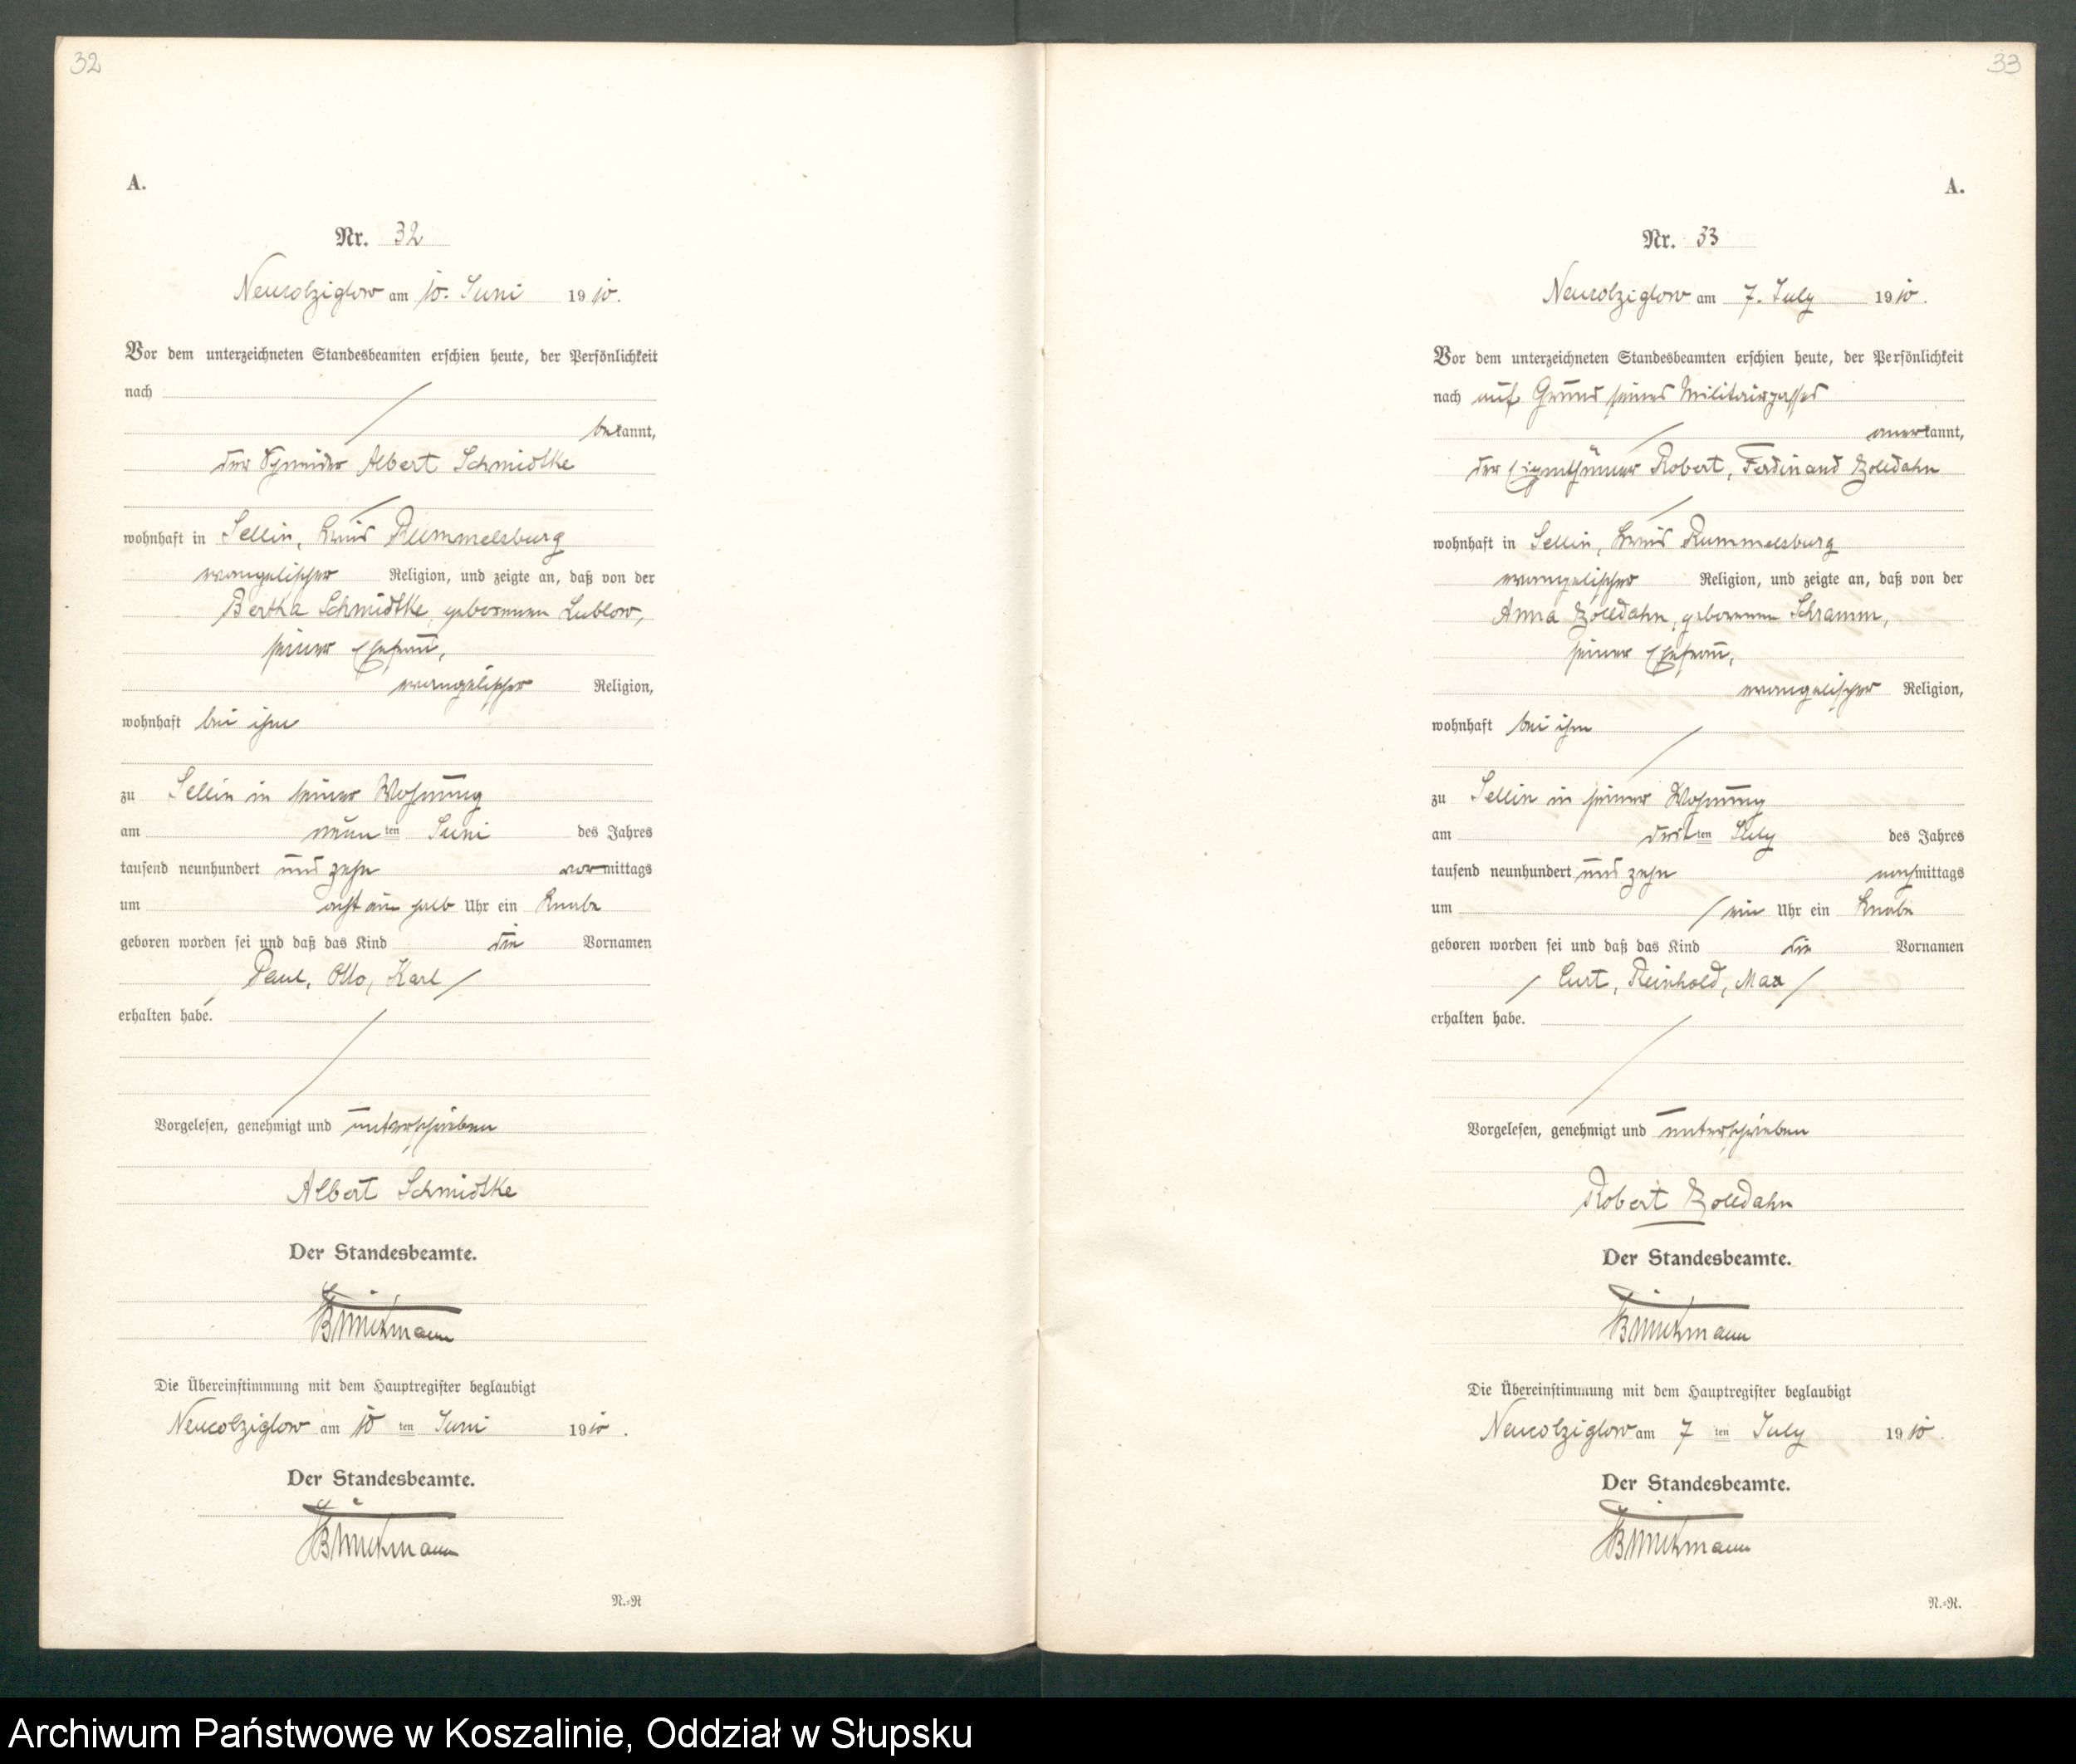 32
A.
Nr. 32
Neukolziglow am 10. Juni 1910.
Vor dem unterzeichneten Standesbeamten erschien heute, der Persönlichkeit
nach
bekannt,
der Schneider Albert Schmidtke
wohnhaft in Sellin, Kreis Rummelsburg
evangelischer Religion, und zeigte an, daß von der
Bertha Schmidtke, geborenen Lublow,
seiner Ehefrau,
evangelischer Religion,
wohnhaft bei ihm
zu Sellin in seiner Wohnung
am neunten Juni des Jahres
tausend neunhundert und zehn vormittags
um acht ein halb Uhr ein Knabe
geboren worden sei und daß das Kind die Vornamen
Paul, Otto, Karl
erhalten habe.
Vorgelesen, genehmigt und unterschrieben
Albert Schmidtke
Der Standesbeamte.
Die Übereinstimmung mit dem Hauptregister beglaubigt
Neukolziglow am 10ten Juni 1910.
Der Standesbeamte.
N.=R
33
A.
Nr. 33
Neukolziglow am 7. July 1910.
Vor dem unterzeichneten Standesbeamten erschien heute, der Persönlichkeit
nach auf Grund seines Militairpasses
anerkannt,
der Eigenthümer Robert, Ferdinand Zolldahn
wohnhaft in Sellin, Kreis Rummelsburg
evangelischer Religion, und zeigte an, daß von der
Anna Zolldahn, geborenen Schramm,
seiner Ehefrau,
evangelischer Religion,
wohnhaft bei ihm
zu Sellin in seiner Wohnung
am dritten July des Jahres
tausend neunhundert und zehn nachmittags
um ein Uhr ein Knabe
geboren worden sei und daß das Kind die Vornamen
Curt, Reinhold, Max
erhalten habe.
Vorgelesen, genehmigt und unterschrieben
Robert Zolldahn
Der Standesbeamte.
Die Übereinstimmung mit dem Hauptregister beglaubigt
Neukolziglow am 7ten July 1910.
Der Standesbeamte.
N.=R.
Archiwum Państwowe w Koszalinie, Oddział w Słupsku